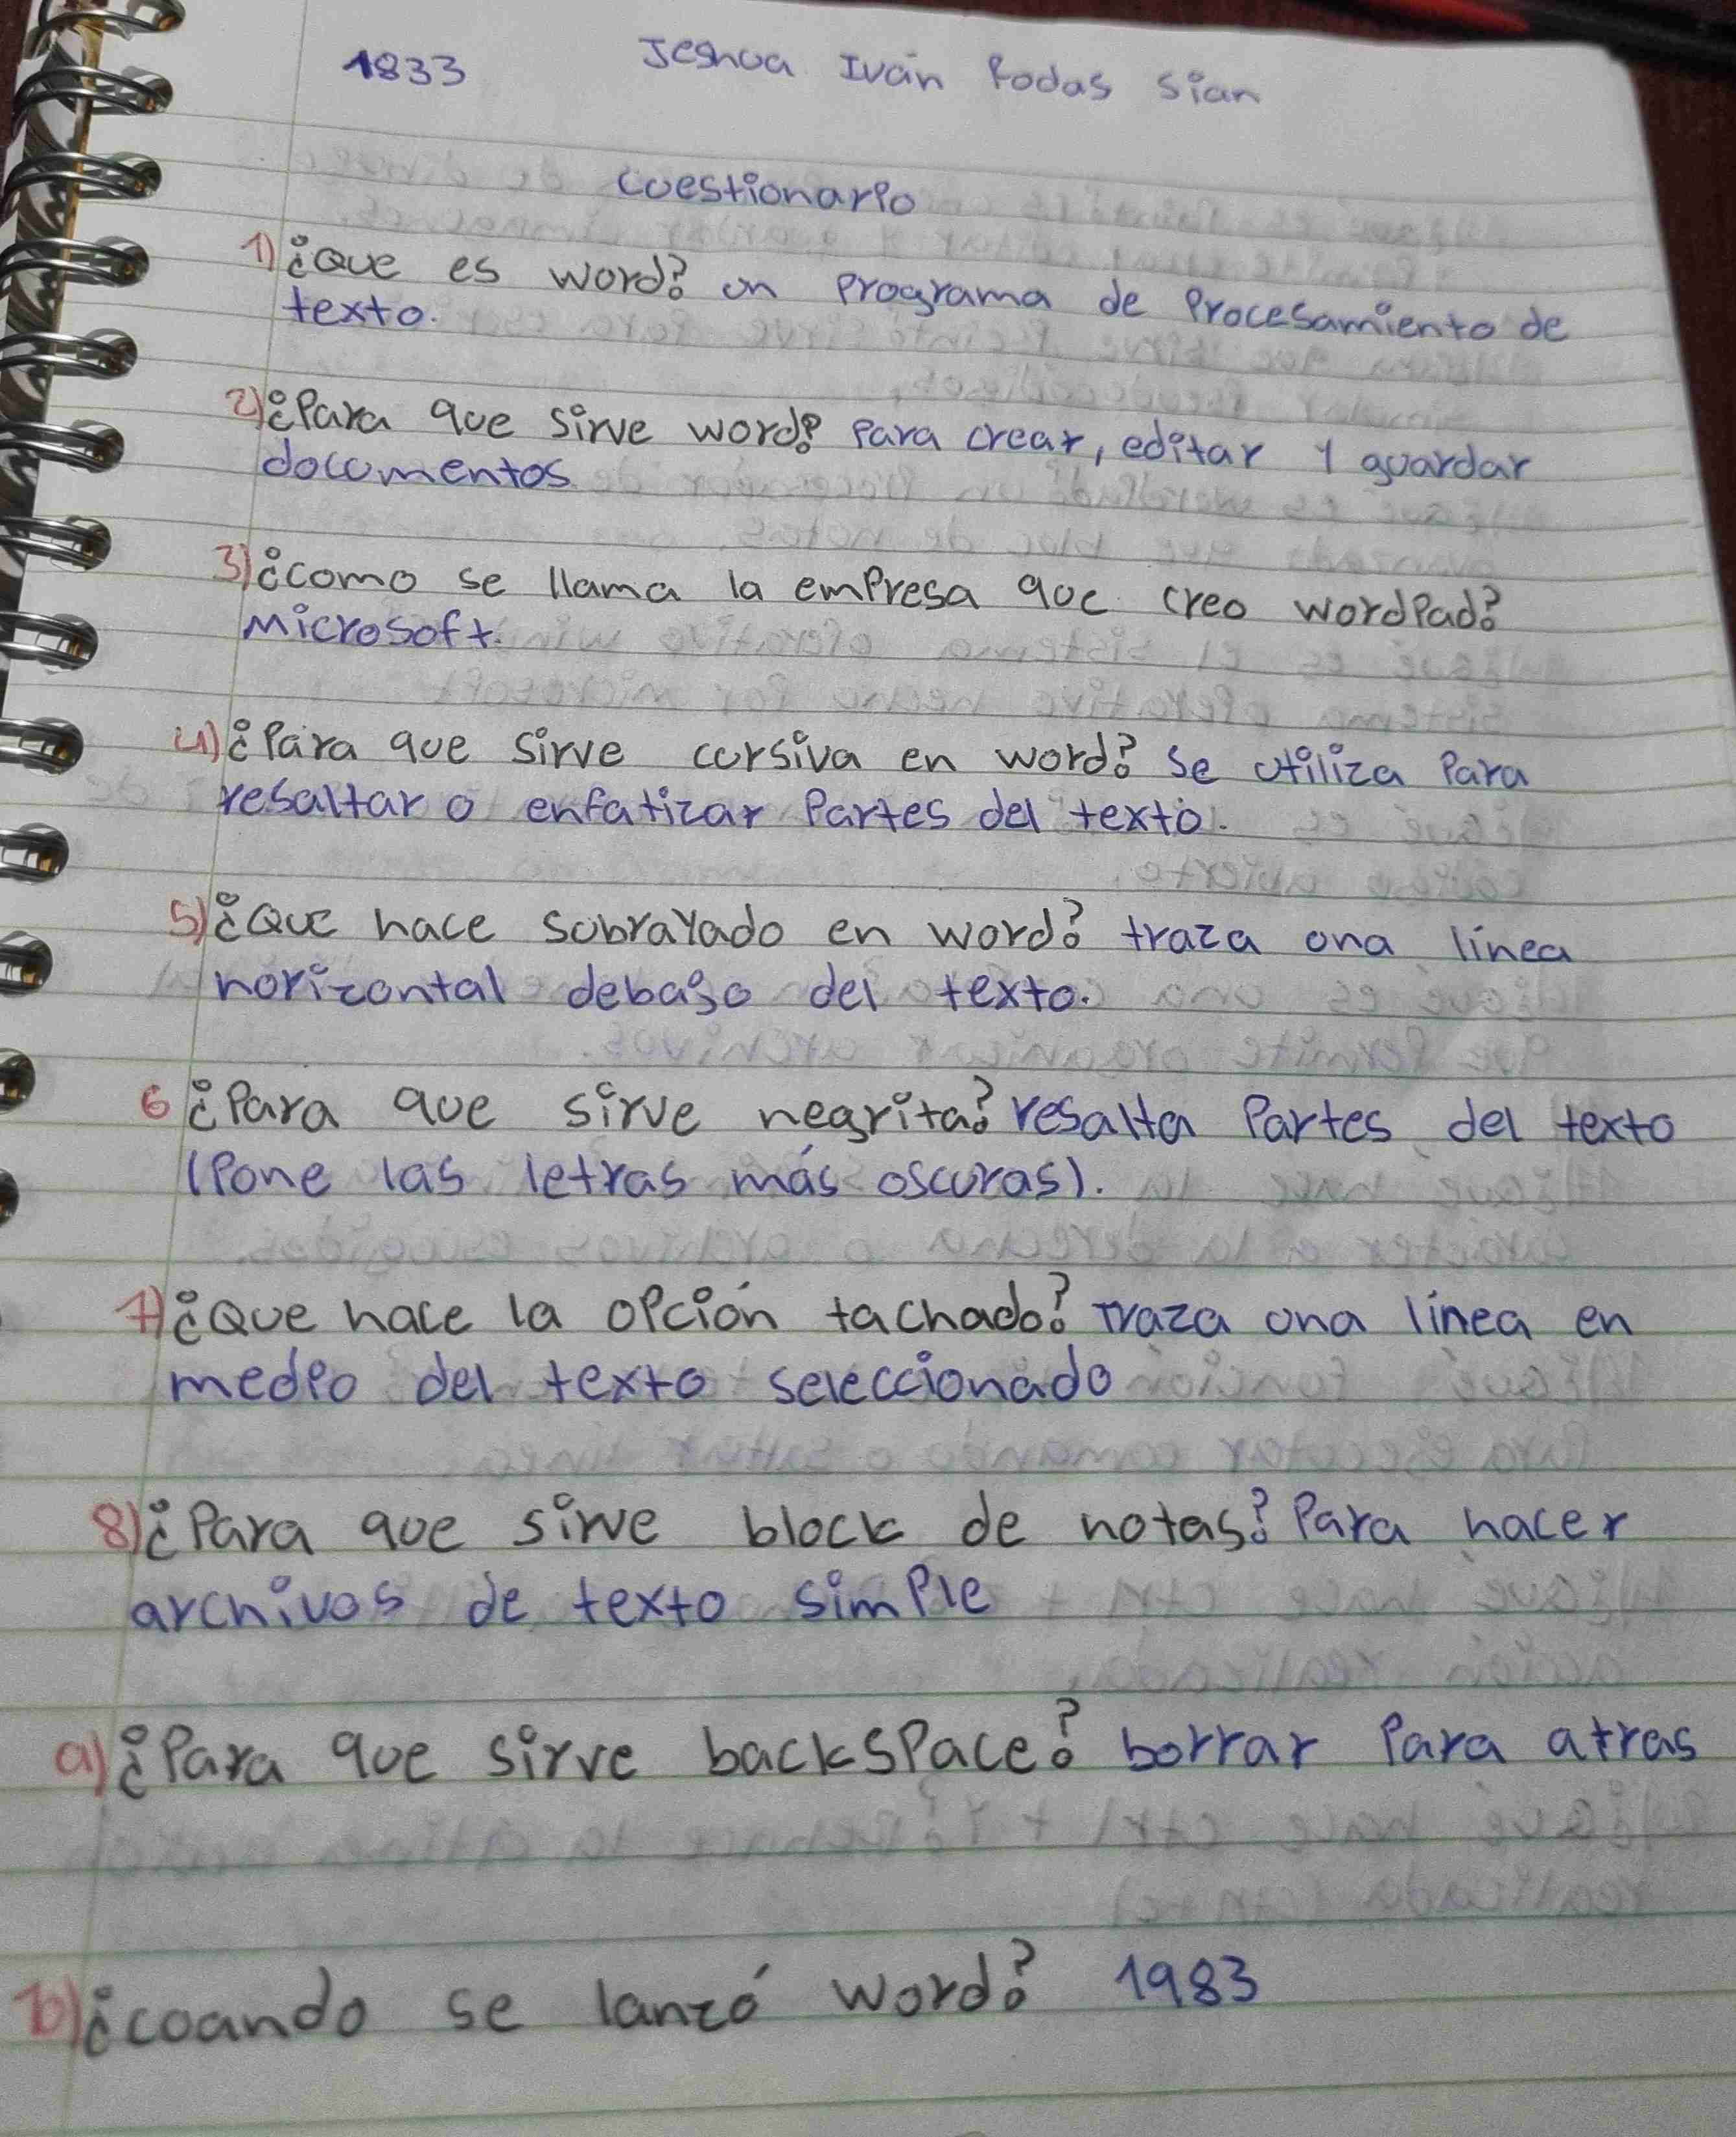 1833 Jeshua Iván Rodas Sian
Cuestionario
1) ¿Que es word? un programa de Procesamiento de
texto.
2) ¿Para que sirve word? Para crear, editar y guardar
documentos
3) ¿como se llama la empresa que creo wordPad?
Microsoft.
4) ¿Para que sirve cursiva en word? Se utiliza Para
resaltar o enfatizar Partes del texto.
5) ¿Que hace subrayado en word? traza una línea
horizontal debajo del texto.
6 ¿Para que sirve negrita? resalta Partes del texto
(Pone las letras más oscuras).
7) ¿Que hace la oPción tachado? Traza una línea en
medio del texto seleccionado
8) ¿Para que sirve block de notas? Para hacer
archivos de texto simPle
9) ¿Para que sirve backsPace? borrar Para atras
10) ¿cuando se lanzó word? 1983